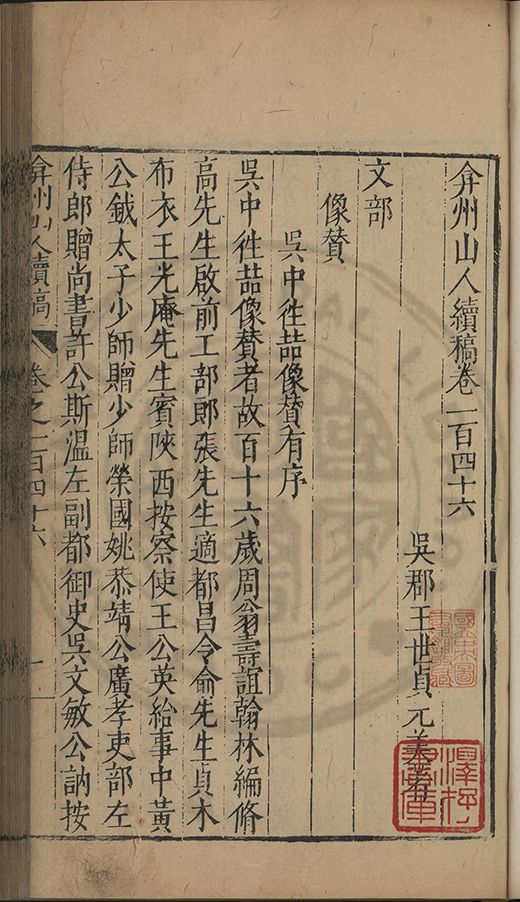 弇州山人續稿卷一百四十六
吳郡王世貞元美著
文部
像贊
吳中徃喆像贊有序
吳中徃喆像贊者故百十六歲周翁壽誼翰林編脩
高先生啟前工部郎張先生適都昌令俞先生貞木
布衣王光庵先生賓陜西按察使王公英給事中黃
公鉞太子少師贈少師榮國姚恭靖公廣孝吏部左
侍郎贈尚書許公斯溫左副都御史吳文敏公訥按
弇州山人續稿 卷之一百四十六 一